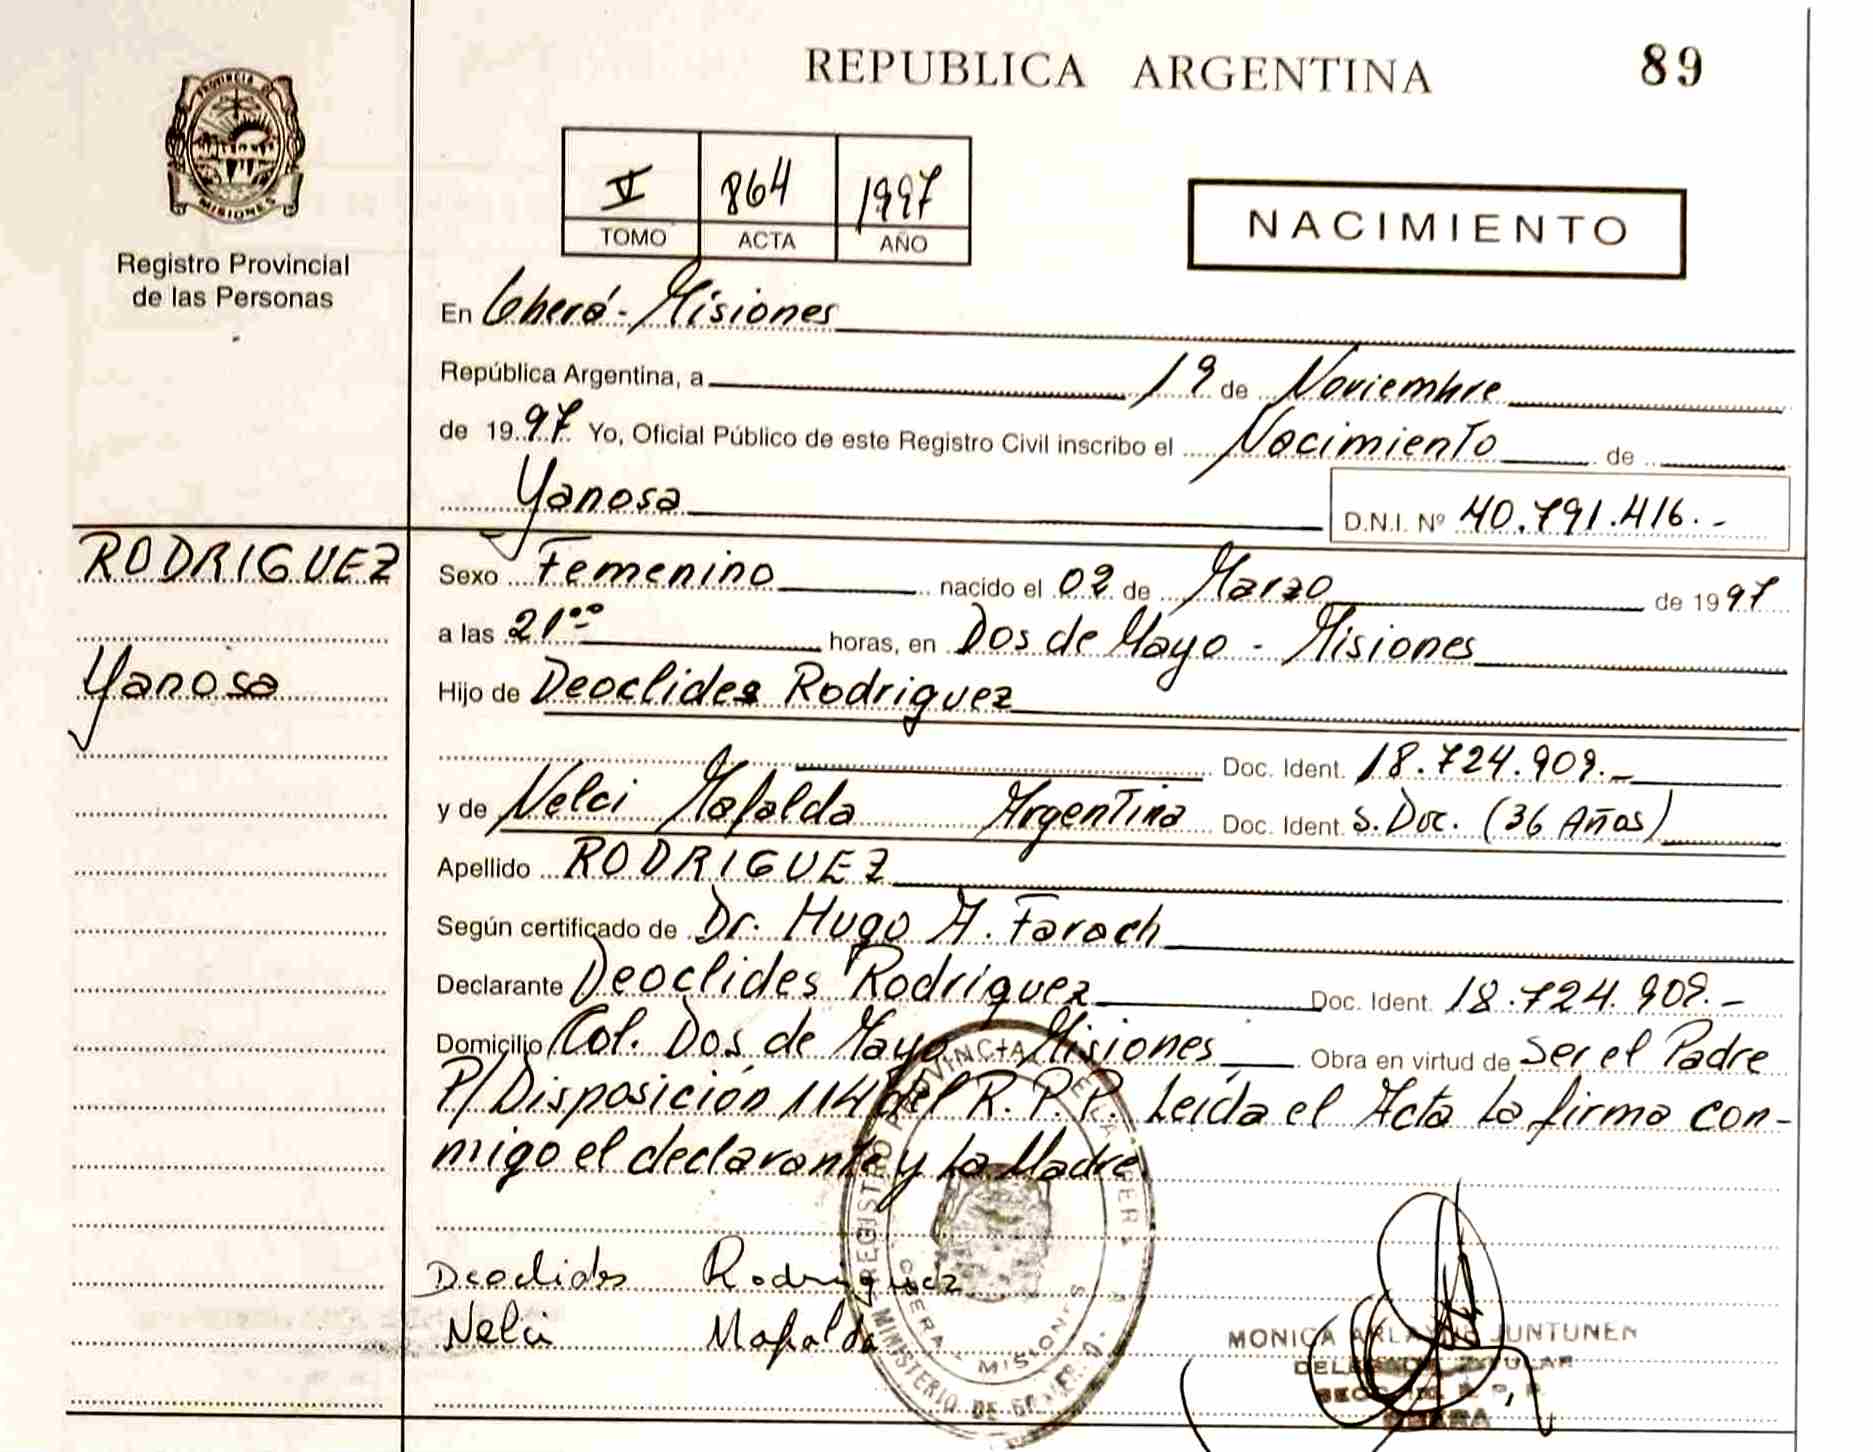 REPUBLICA ARGENTINA
89
PROVINCIA DE
MISIONES
Registro Provincial
de las Personas
V 864 1997
TOMO ACTA AÑO
NACIMIENTO
En Oberá - Misiones
República Argentina, a 19 de Noviembre
de 1997 Yo, Oficial Público de este Registro Civil inscribo el Nacimiento de
Yanosa
D.N.I. Nº 40.791.416.-
RODRIGUEZ
Yanosa
Sexo Femenino nacido el 02 de Marzo de 1997
a las 21°° horas, en Dos de Mayo - Misiones
Hijo de Deoclides Rodriguez
Doc. Ident. 18.724.909.-
y de Nelci Mafalda Argentina Doc. Ident. S. Doc. (36 Años)
Apellido RODRIGUEZ
Según certificado de Dr. Hugo A. Faroch
Declarante Deoclides Rodriguez Doc. Ident. 18.724.909.-
Domicilio Col. Dos de Mayo - Misiones Obra en virtud de Ser el Padre
P/Disposición 114 del R.P.P. Leída el Acta la firma con-
migo el declarante y la Madre
Deoclides Rodriguez
Nelci Mafalda
REGISTRO PROVINCIAL DE LA PER
MISIONES
MINISTERIO DE
MONICA JUNTUNEN